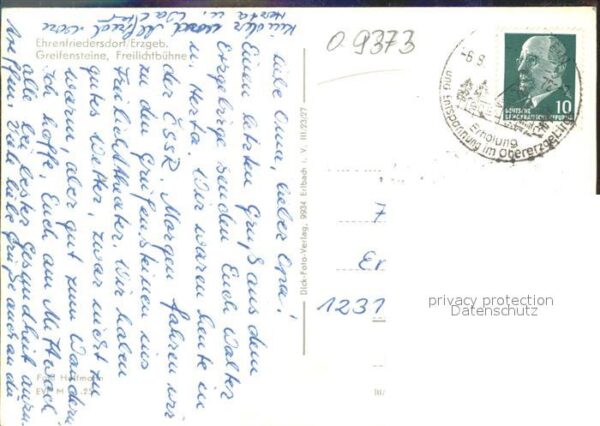 Ehrenfriedersdorf/Erzgeb.
Greifensteine, Freilichtbühne
Liebe Oma, lieber Opa!
Einen letzten Gruß aus dem
Erzgebirge senden Euch Walter
u. Herta. Wir waren heute in
der ČSSR. Morgen fahren wir
zu den Greifensteinen ins
Freilichttheater. Wir haben
gutes Wetter, zwar nicht zu
warm, aber gut zum Wandern.
Ich hoffe, Euch am Mittwoch
alle bei bester Gesundheit anzu-
treffen. Viele liebe Grüße auch an die
Kinder und Alfred von
Herta u. Walter
Dick-Foto-Verlag, 9934 Erlbach i. V. III/23/27
09373
-6.9.
Erholung
und Entspannung im Obererzgebirge
DEUTSCHE
DEMOKRATISCHE REPUBLIK
10
7
Er
1231
privacy protection
Datenschutz